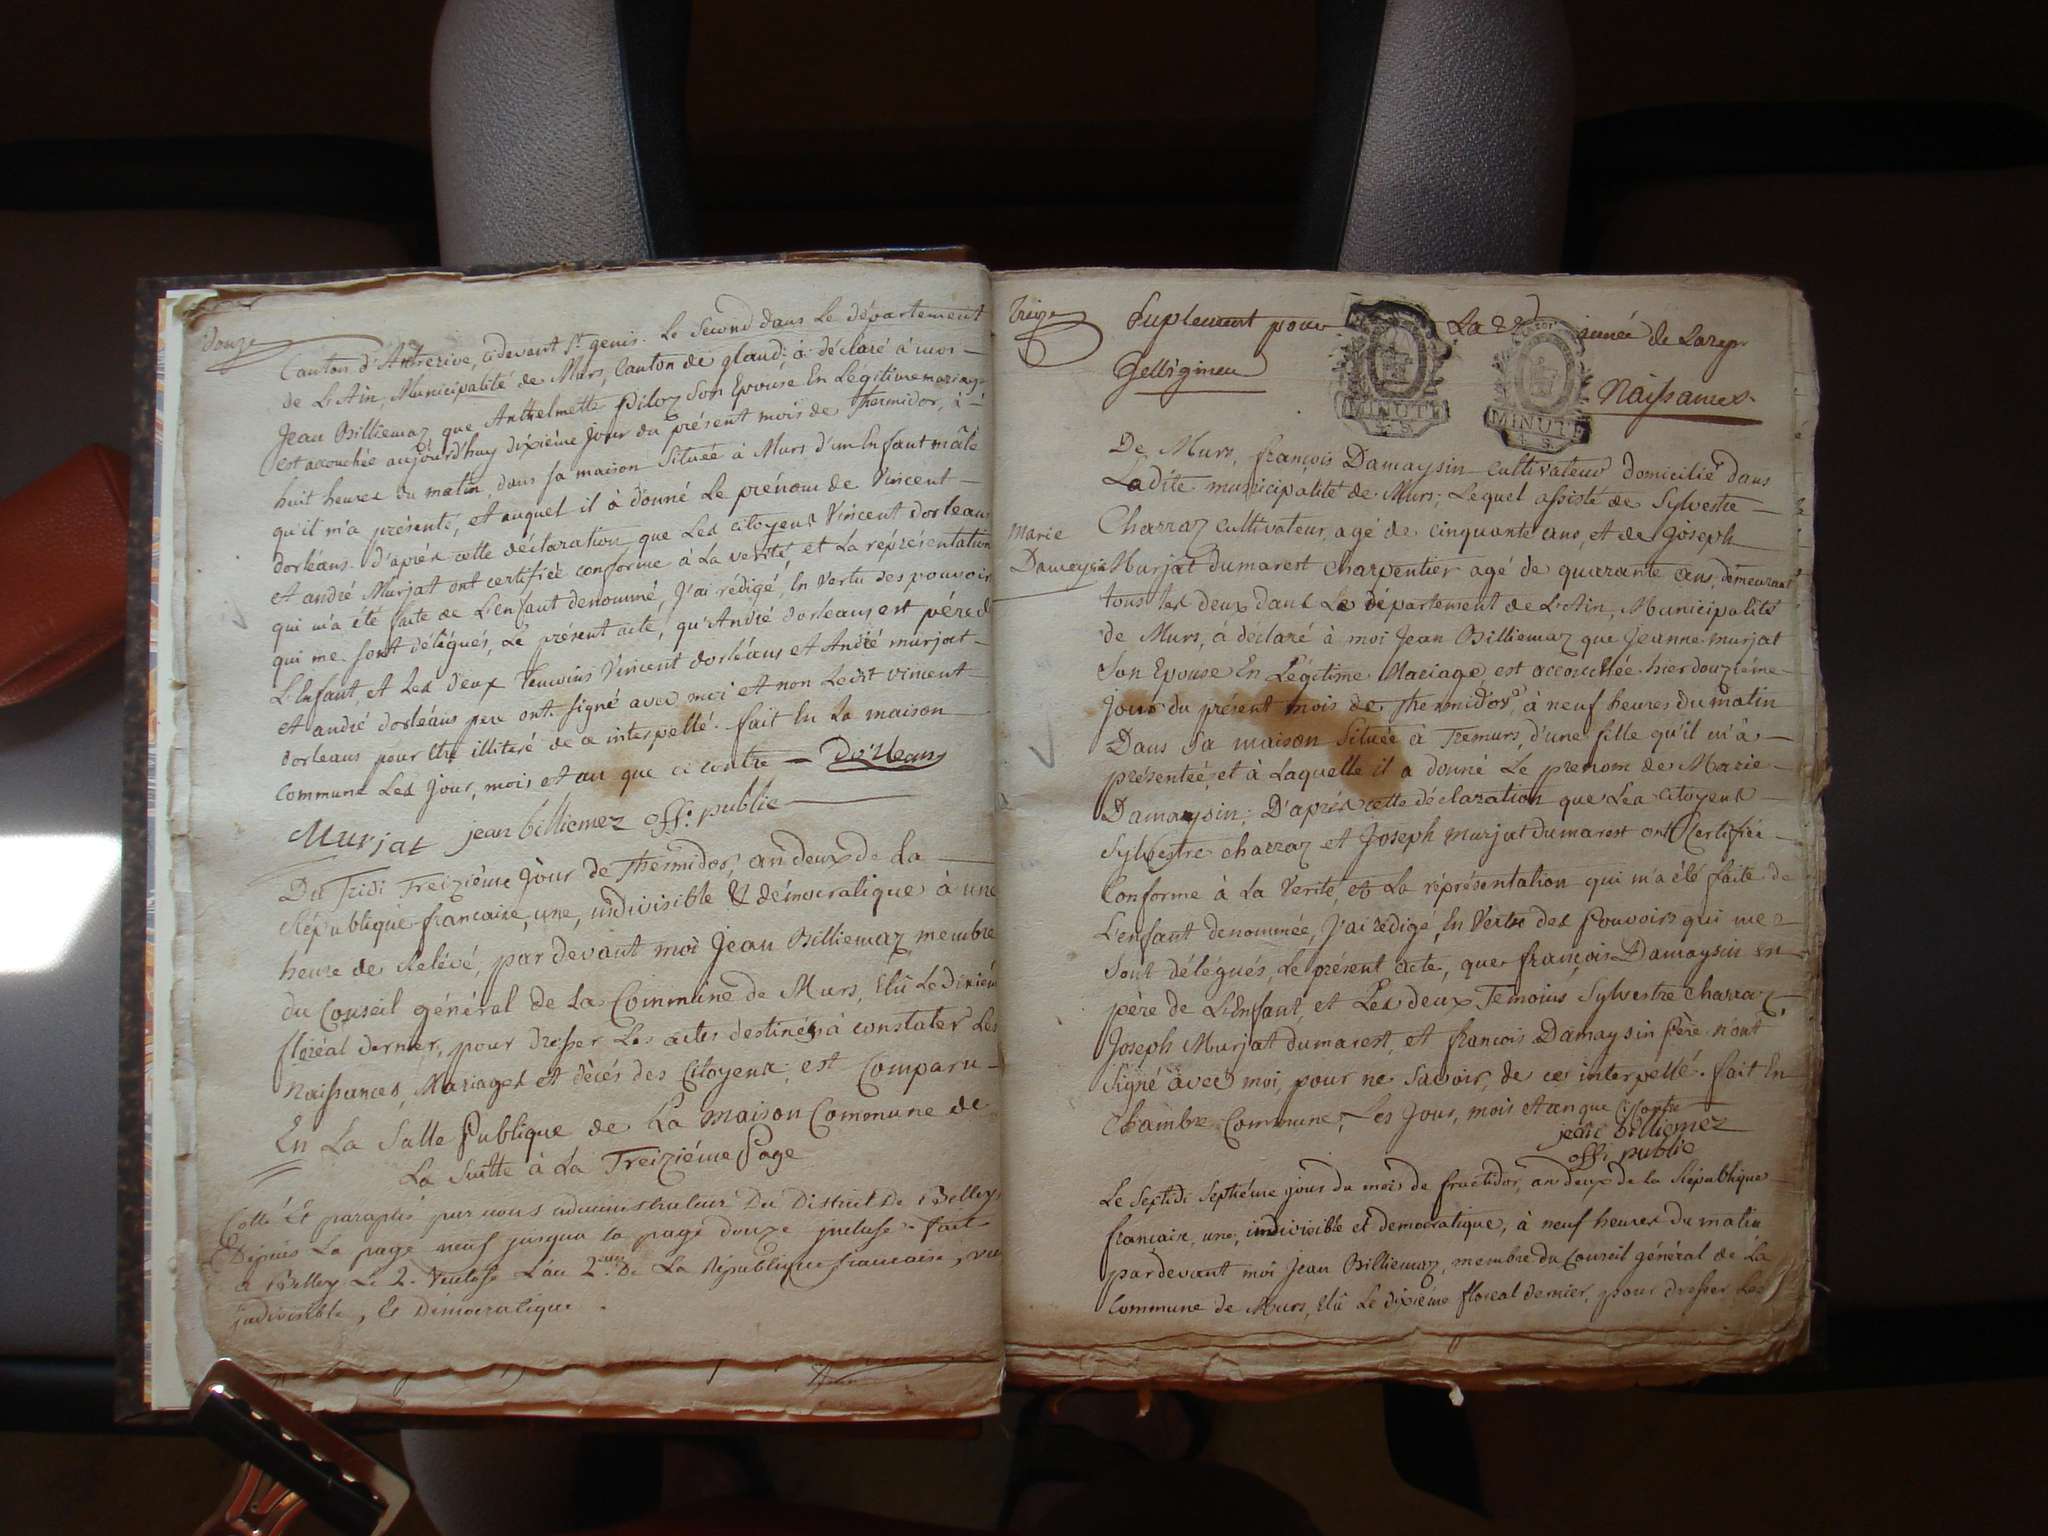 Douze
Canton d'Antrerive, cy devant St. genis. Le Second dans Le département
de L'Ain, Municipalité de Murs, Canton de gland; à déclaré à moi
Jean Billiemaz que Anthelmette Piloz Son Epouse En Légitime mariage
est accouchée aujourd'huy dixiéme Jour du présent mois de Thermidor, à
huit heures du matin, dans sa maison Située à Murs d'un Enfant mâle
qu'il m'a présenté, et auquel il à donné Le prénom de Vincent
dorléans. d'après cette déclaration que Les citoyens Vincent dorleans
et andré Murjat ont certifiée conforme à La verité, et La représentation
qui m'a été faite de L'enfant denommé, J'ai rédigé, En vertu des pouvoirs
qui me sont délégués, Le présent acte, qu'André dorleans est pére de
L'Enfant, et Les deux Temoins Vincent dorléans et André murjat
et andré dorléans pere ont signé avec moi et non Ledit vincent
dorleans pour être illiteré de ce interpellé. fait En La maison
commune Les Jour, mois et an que ci contre Dorlean
Murjat jean billiemez off. public
Du Tridi Treizième Jour de Thermidor, an deux de La
République francaise, une, indivisible & démocratique à une
heure de Relévé, par devant moi Jean Billiemaz membre
du Conseil général de La Commune de Murs, Elû Le dixiém
floréal dernier, pour dresser Les actes destinés à constater Les
Naissances, Mariages et décés des Citoyens, est Comparu
En La Salle Publique de La maison Commune de
La Suitte à La Treiziéme Page
Cotté Et paraphé par nous administrateur Du District De Belley
Depuis La page neuf jusqua la page douze incluse. fait
a Belley Le 2. Ventose L'an 2eme De La République francaise, une
indivisible, & Démocratique.
Treize
Suplement pour La 22 année de Larep
Naissances
MINUTE
MINUTE
De Murs, françois Damaysin cultivateur domicilié dans
Ladite municipalité de Murs; Lequel assisté de Sylvestre
Charraz cultivateur, agé de cinquante ans, et de joseph
Marie
Dameysin
Murjat dumarest Charpentier agé de quarante ans, démeurant
tous Les deux dans Le département de L'Ain, Municipalité
de Murs, à déclaré à moi Jean Billiemaz que Jeanne murjat
Son Epouse En Légitime Mariage, est accouchée hier douziéme
Jour du présent mois de Thermidor, à neuf heures du matin
Dans Sa maison Située à Tremurs, d'une fille qu'il m'à
présenteé, et à Laquelle il a donné Le prenom de Marie
Damaysin; D'après cette déclaration que Les Citoyens
Sylvestre charraz et Joseph murjat dumarest ont Certifiée
Conforme à La Verité, et La réprésentation qui m'a été faite de
L'enfant denommée, J'ai rédigé, En Vertu des Pouvoirs qui me
Sont délégués, Le présent acte, que françois Damaysin est
père de L'Enfant, et Les deux Temoins Sylvestre charraz,
Joseph Murjat dumarest, et francois Damaysin Père n'ont
signé avec moi, pour ne Savoir, de ce interpellé. fait En
Chambre Commune, Les Jour, mois et an que Ci Contre
jean billiemez
off. public
Le Septidi Septiéme jour du mois de fructidor, an deux de la République
francaise, une, indivisible et democratique, à neuf heures du matin
pardevant moi Jean Billiemaz, membre du Conseil général de La
Commune de Murs, Elû Le dixième floreal dernier, pour dresser Les